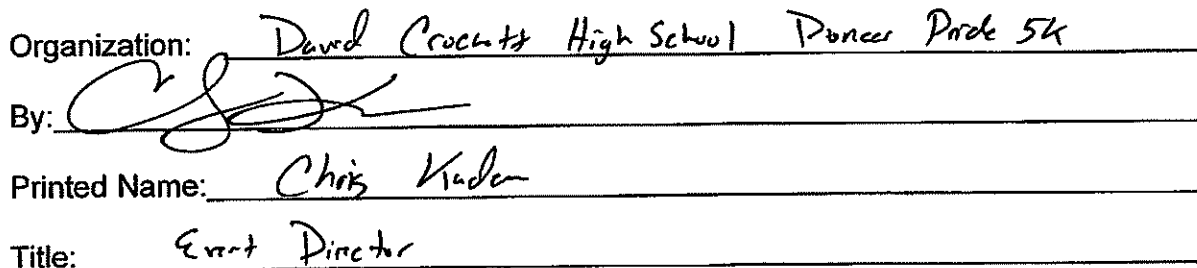 Organization: David Crockett High School Pioneer Pride 5K
By:
Printed Name: Chris
Title: Event Director